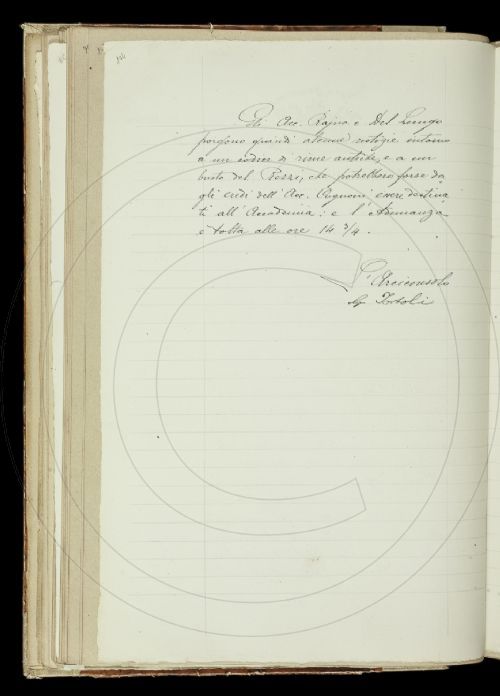 Gli Acc. Rajna e Del Lungo
porgono quindi alcune notizie intorno
a un codice di rime antiche, e a un
busto del Rezzi, che potrebbero forse da
gli eredi dell'Acc. Cugnoni essere destina
ti all'Accademia: e l'Adunanza
è tolta alle ore 14 3/4.
L'Arciconsolo
G. Tortoli